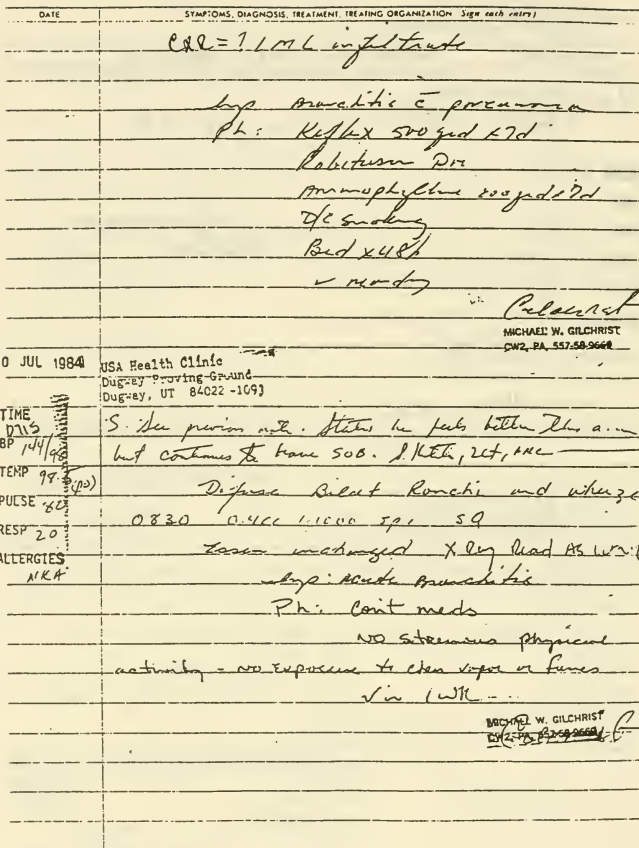 DATE SYMPTOMS, DIAGNOSIS, TREATMENT, TREATING ORGANIZATION Sign each entry)
CXR = ? LML infiltrate
Imp Bronchitis c̄ pneumonia
Ph: Keflex 500 qid x7d
Robitussin DM
Aminophylline 200 qid x7d
D/C Smoking
Bed x48h
✓ monday
Gilchrist
MICHAEL W. GILCHRIST
CW2, PA, 557-58-9660
0 JUL 1984
USA Health Clinic
Dugway Proving Ground
Dugway, UT 84022-1093
TIME 0715
BP 144/98
TEMP 98.5 (po)
PULSE 82
RESP 20
ALLERGIES NKA
S: See previous note. States he feels better this a.m
but continues to have SOB.
Diffuse Bilat Ronchi and wheeze
0830 0.4cc 1:1000 Epi SQ
unchanged X Ray Read AS WNL
Imp: Acute Bronchitis
Ph: Cont meds
NO Strenuous physical
activity = NO Exposure to chem vapor or fumes
✓ in 1 WK
MICHAEL W. GILCHRIST
CW2, PA, 557-58-9660